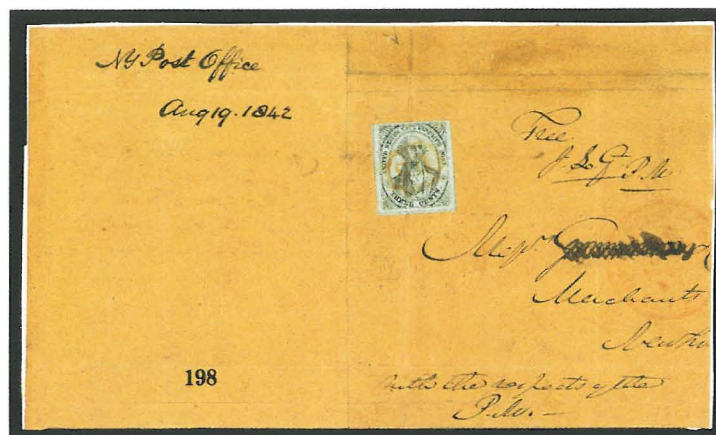 NY Post Office
Aug 19. 1842
UNITED STATES CITY DESPATCH POST
THREE CENTS
Free
P.M.
Merchants
with the respects of the
P.M.
198